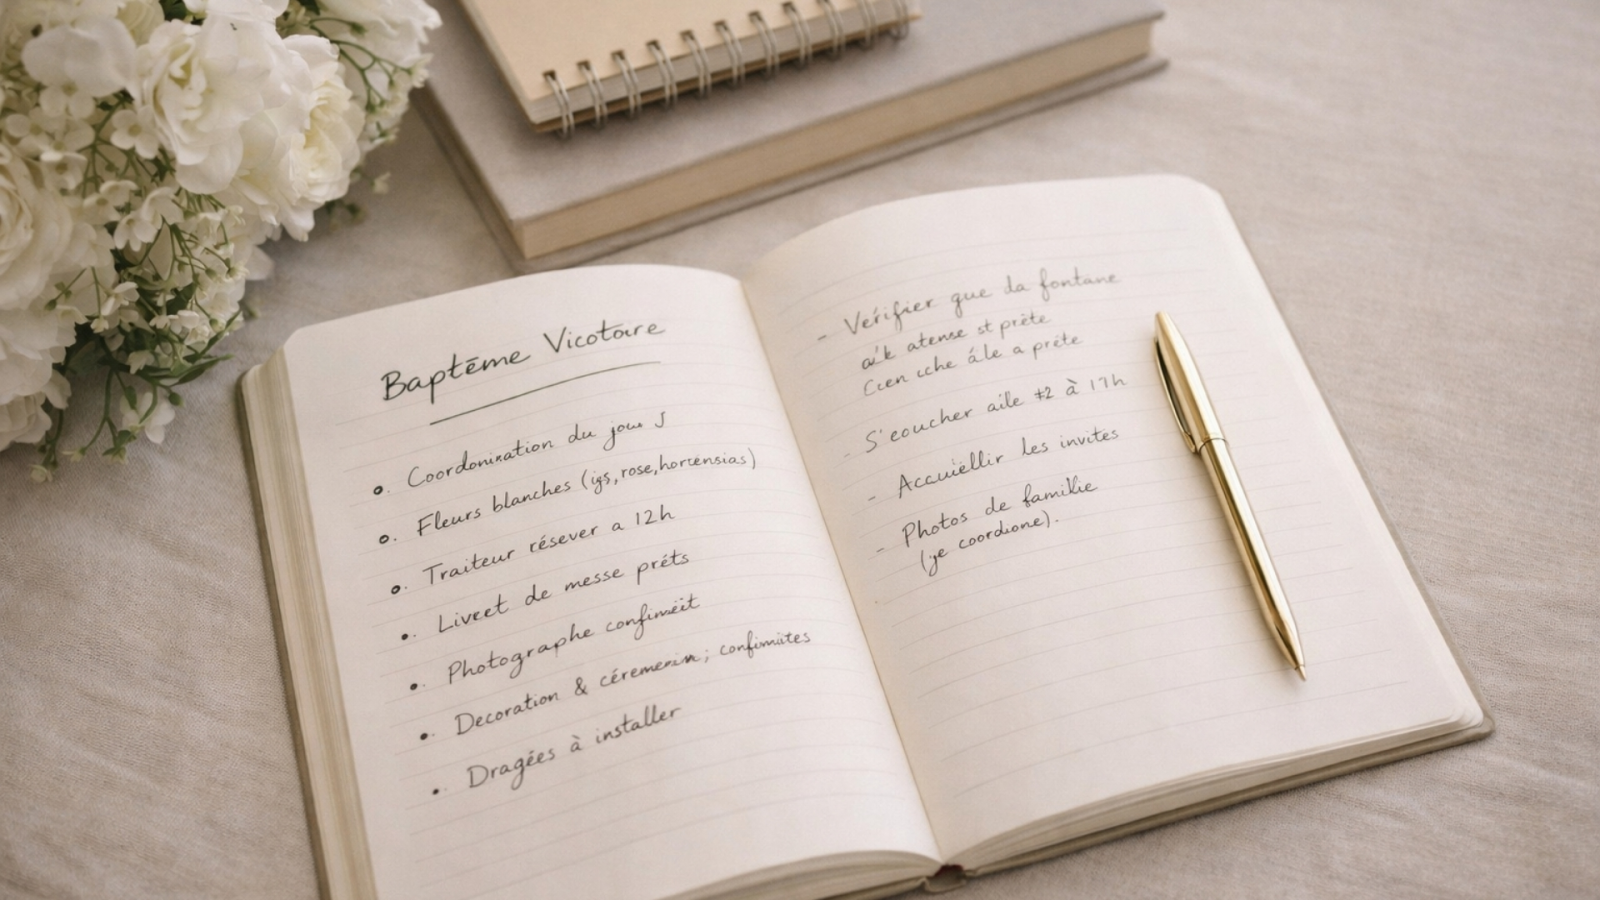 Baptême Vicotoire
Coordonination du jou J
Fleurs blanches (igs, rose, hortensias)
Traiteur résever a 12h
Liveet de messe prêts
Photographe confimëit
Decoration & céremenin; confimates
Dragées à installer
- Vérifier que da fontane
aik atense st prête
Cien iche ále a préte
- S'eoucher aile #2 à 17h
- Accuiéllir les invites
- Photos de familie
(je coordione).